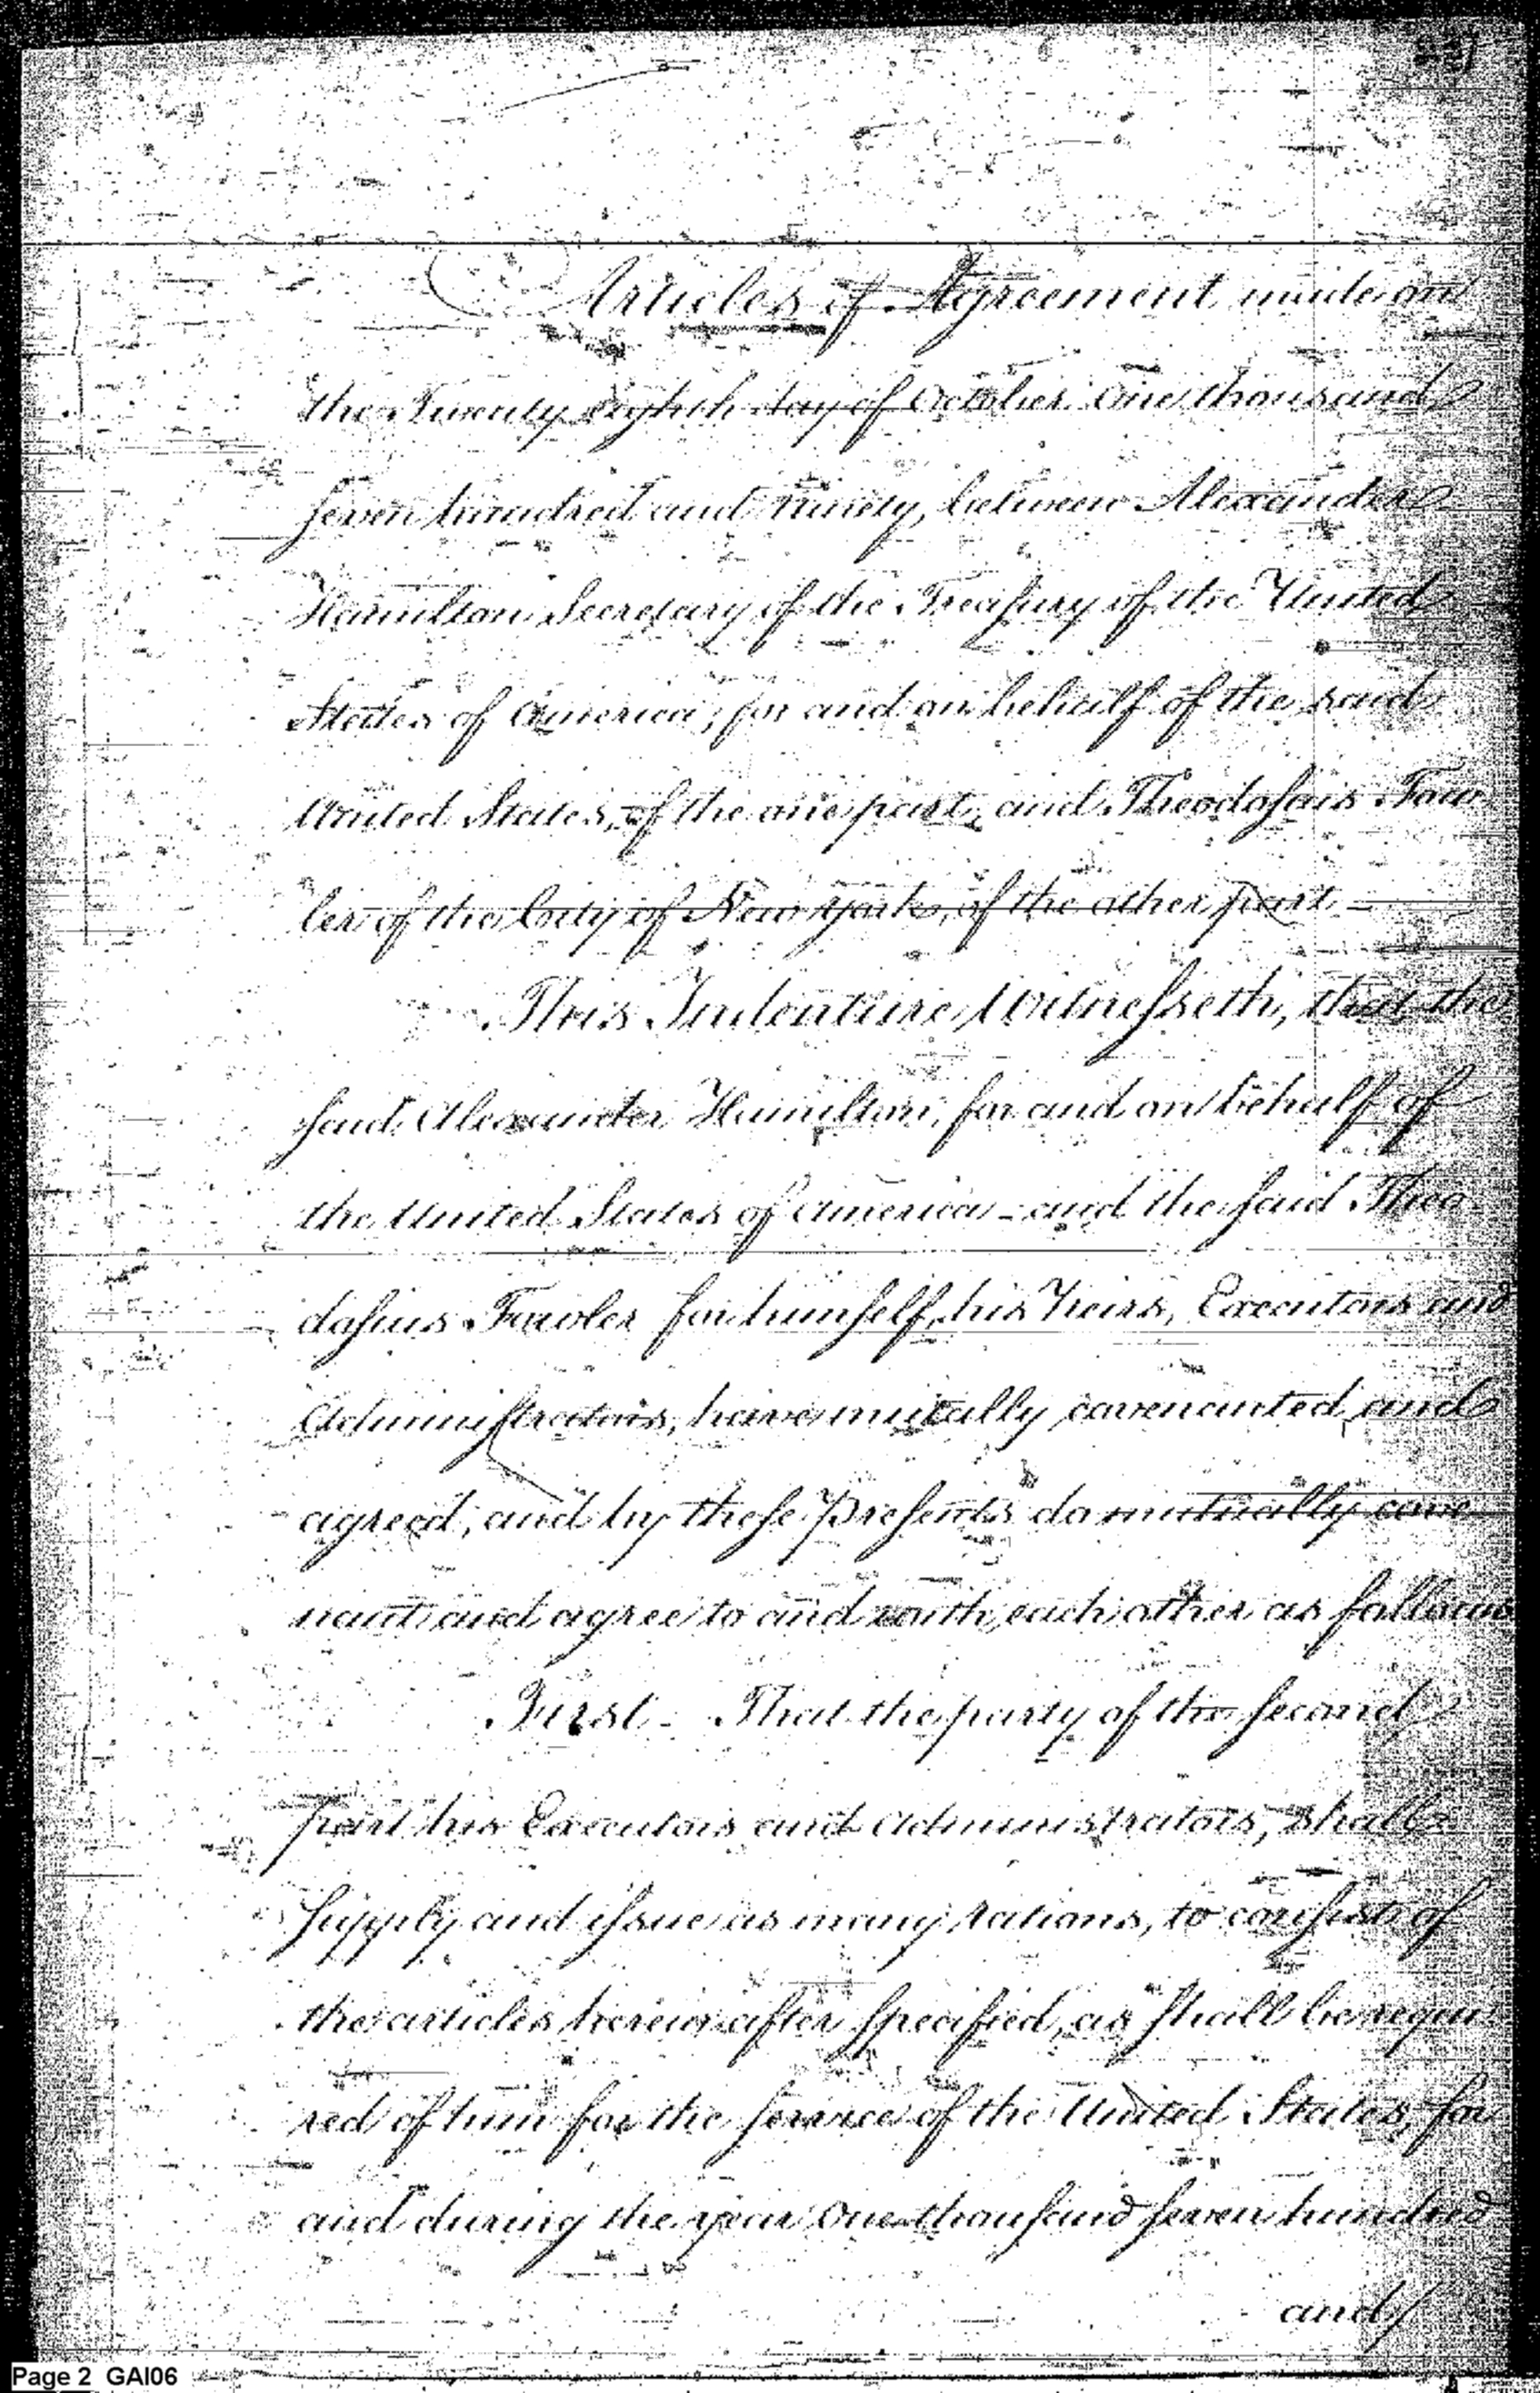 Articles of Agreement made on
the Twenty eighth day of October One thousand
seven hundred and ninety, between Alexander
Hamilton Secretary of the Treasury of the United
States of America, for and on behalf of the said
United States, of the one part, and Theodosius Fow
ler of the City of New York, of the other part
This Indenture Witnesseth, that the
said Alexander Hamilton, for and on behalf of
the United States of America - and the said Theo
dosius Fowler for himself, his Heirs, Executors and
Administrators, have mutally covenanted and
agreed, and by these Presents do mutually cove
nant and agree to and with each other as follows
First - That the party of the second
part his Executors and Administrators, shall
supply and issue as many rations, to consist of
the articles herein after specified, as shall be requi
red of him for the service of the United States, for
and during the year One thousand seven hundred
and
Page 2 GAI06